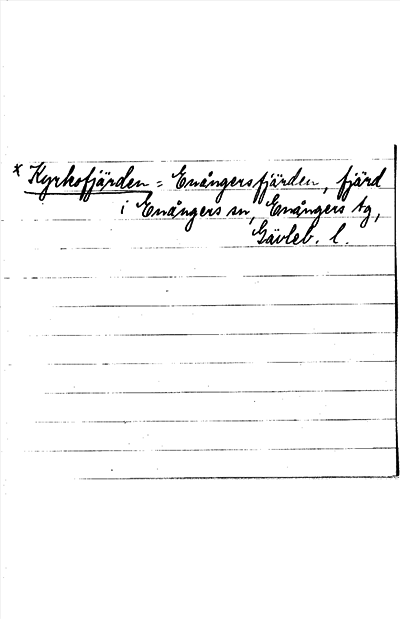 * Kyrkofjärden = Enångersfjärden, fjärd
i Enångers sn, Enångers tg,
Gävleb. l.